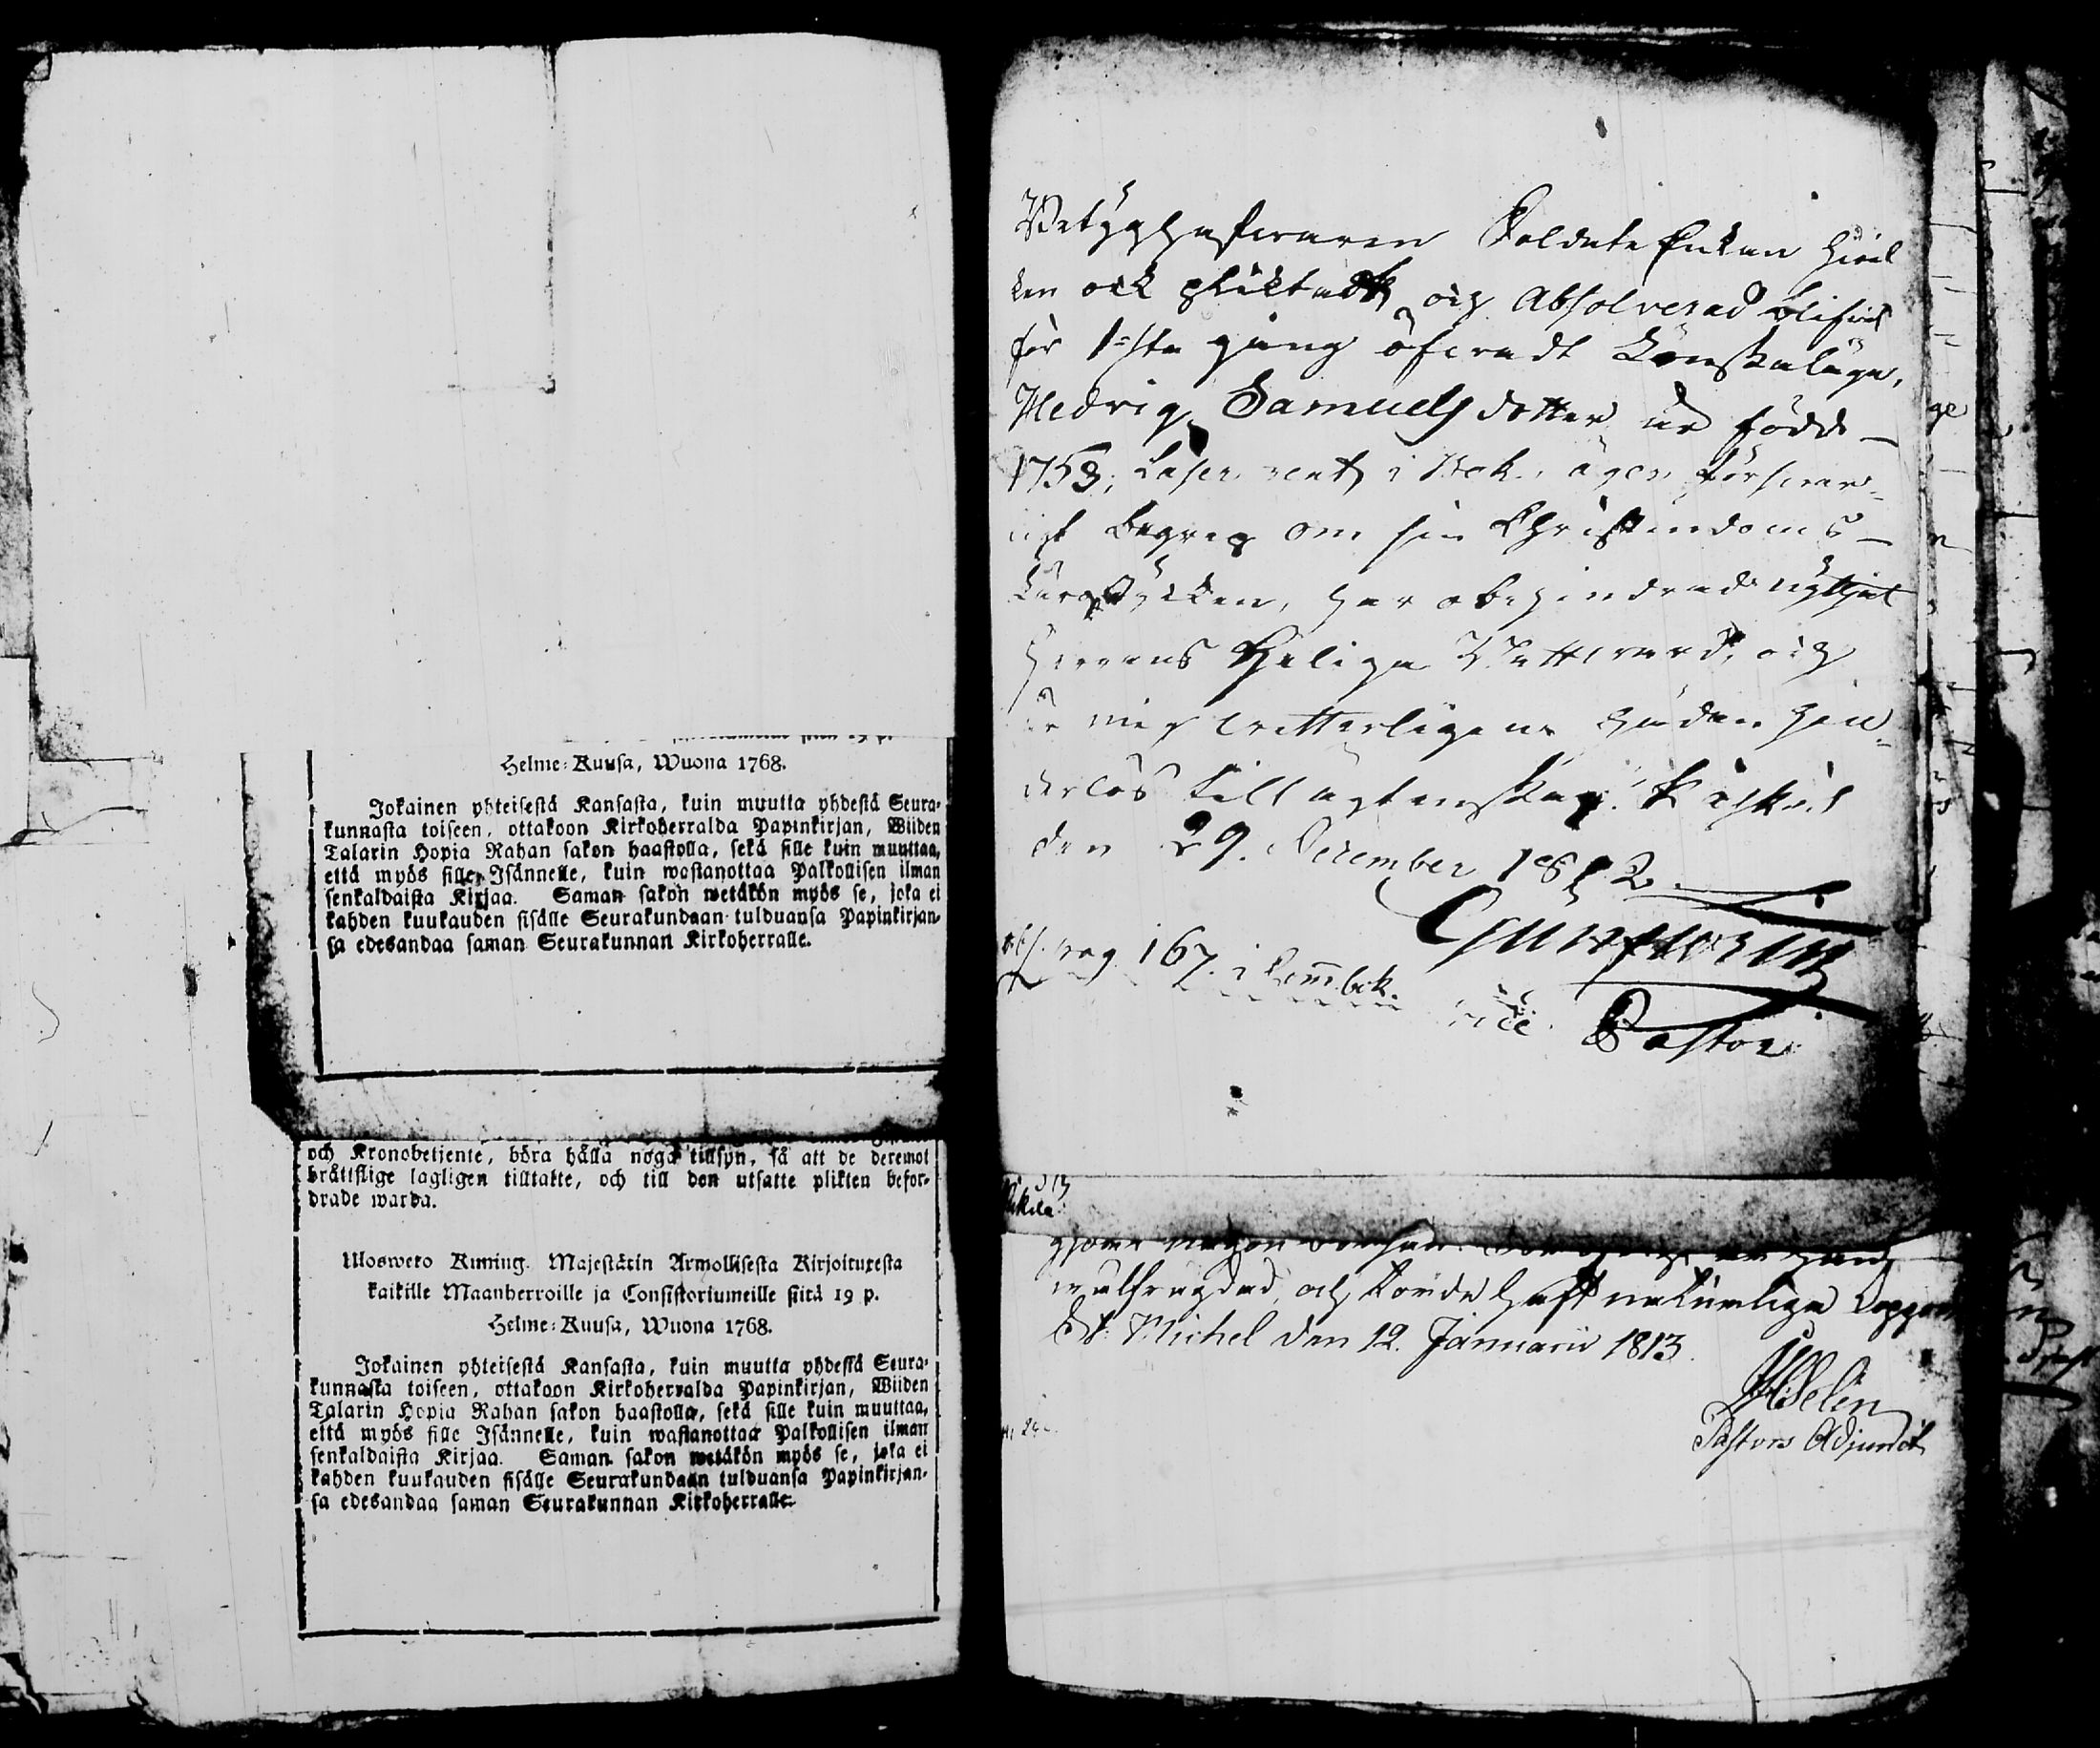 Helme-Kuusa, Wuona 1768.
Jokainen yhteisestä Kansasta, kuin muutta yhdestä Seura-
kunnasta toiseen, ottakoon Kirkoherralda Papinkirjan, Wiiden
Talarin Hopia Rahan sakon haastolla, sekä sille kuin muuttaa,
että myös sille Isännelle, kuin wastanottaa Palkollisen ilman
senkaldaista Kirjaa. Saman sakon wetäkön myös se, joka ei
kahden kuukauden sisälle Seurakundaan tulduansa Papinkirjan-
sa edesandaa saman Seurakunnan Kirkoherralle.
och Kronobetjente, böra hålla noga tillsyn, så att de deremot
bråttslige lagligen tilltalte, och till den utsatte plikten befor-
drade warda.
Ulosweto Kuning. Majestätin Armollisesta Kirjoituxesta
kaikille Maanherroille ja Consistoriumeille siitä 19 p.
Helme-Kuusa, Wuona 1768.
Jokainen yhteisestä Kansasta, kuin muutta yhdestä Seura-
kunnasta toiseen, ottakoon Kirkoherralda Papinkirjan, Wiiden
Talarin Hopia Rahan sakon haastolla, sekä sille kuin muuttaa,
että myös sille Isännelle, kuin wastanottaa Palkollisen ilman
senkaldaista Kirjaa. Saman sakon wetäkön myös se, joka ei
kahden kuukauden sisälle Seurakundaan tulduansa Papinkirjan-
sa edesandaa saman Seurakunnan Kirkoherralle.
Betyghafwaren Soldate Enkan hwil
ken ock pliktadt och Absolverad blifvit
för 1=sta gång öfvadt Lönskaläge,
Hedvig Samuelsdotter är född
1753; Läser rent i Bok, äger försvar-
ligt Begrep om sin Christendoms
Lärostycken, har obehindrad nyttjat
Herrens Heliga Nattvard, och
är mig vetterligen hädan hin-
derlös till ägtenskap.
den 29. December 1812.
pag 167. i Comb.bok.
vice Pastor
och
St. Michel den 12. Januarii 1813.
Pastors Adjunct